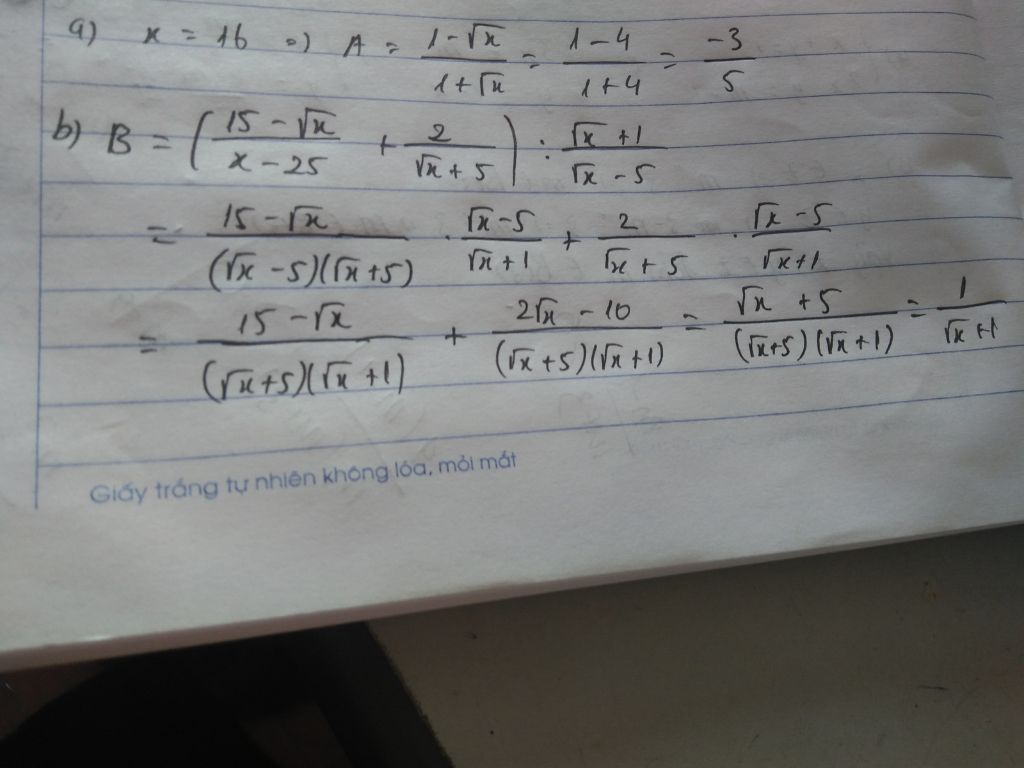 a) x = 16 => A = (1 - √x)/(1 + √x) = (1 - 4)/(1 + 4) = -3/5
b) B = ((15 - √x)/(x - 25) + 2/(√x + 5)) : (√x + 1)/(√x - 5)
= (15 - √x)/((√x - 5)(√x + 5)) . (√x - 5)/(√x + 1) + 2/(√x + 5) . (√x - 5)/(√x + 1)
= (15 - √x)/((√x + 5)(√x + 1)) + (2√x - 10)/((√x + 5)(√x + 1)) = (√x + 5)/((√x + 5)(√x + 1)) = 1/(√x + 1)
Giấy trắng tự nhiên không lóa, mỏi mắt